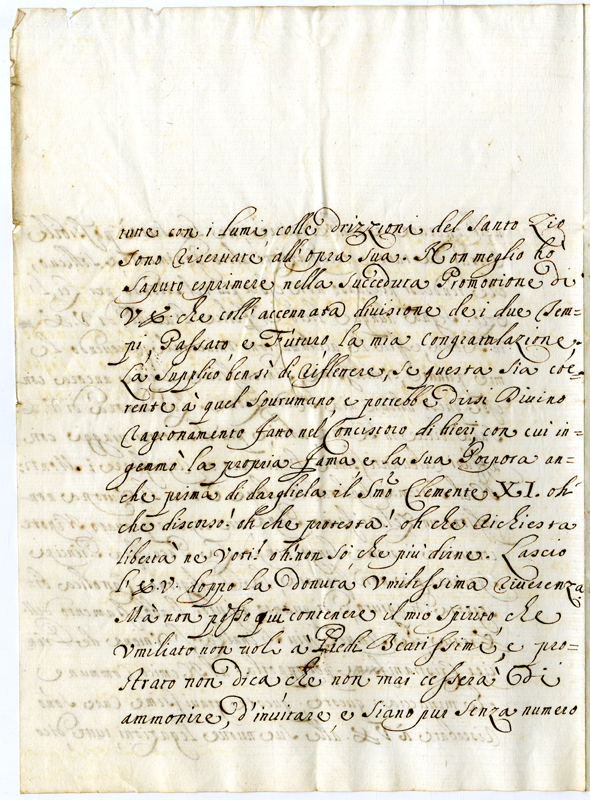 tutte con i Lumi colle drizzioni del Santo Zio
sono riservate all'opra sua. Non meglio hò
saputo esprimere nella succeduta Promozione di
V.E. che coll'accennata divisione de i due Tem=
pi, Passato e Futuro la mia congratulazione.
La supplico bensì di riflettere, se questa sia coe=
rente à quel sourumano, e potrebbe dirsi Divino
Ragionamento fatto nel Conciscoro di hieri, con cui in=
gemmò la propria Fama e la Sua Porpora an=
che prima di dargliela il Smo Clemente XI. oh
che discorso! oh che protesta! oh che richiesta
libertà ne Voti! oh non sò che più dirne. Lascio
l'E.V. doppo la douuta Vmilissima riverenza
Mà non posso qui contenere il mio spirito che
Vmiliato non voli à Piedi Beatissimi, e pro=
strato non dica che non mai cesserà di
ammonire, d'invitare, e siano pur senza numero